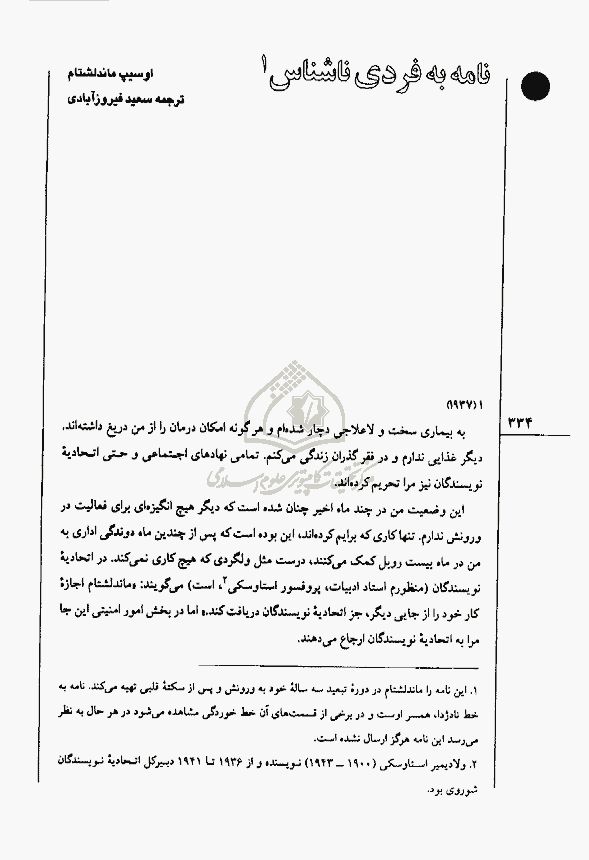 نامه به فردی ناشناس۱
اوسیپ ماندلشتام
ترجمه سعید فیروزآبادی
۳۳۴
۱ (۱۹۳۷)
به بیماری سخت و لاعلاجی دچار شده‌ام و هرگونه امکان درمان را از من دریغ داشته‌اند،
دیگر غذایی ندارم و در فقر گذران زندگی می‌کنم. تمامی نهادهای اجتماعی و حتی اتحادیهٔ
نویسندگان نیز مرا تحریم کرده‌اند.
این وضعیت من در چند ماه اخیر چنان شده است که دیگر هیچ انگیزه‌ای برای فعالیت در
ورونش ندارم. تنها کاری که برایم کرده‌اند، این بوده است که پس از چندین ماه دوندگی اداری به
من در ماه بیست روبل کمک می‌کنند، درست مثل ولگردی که هیچ کاری نمی‌کند. در اتحادیهٔ
نویسندگان (منظورم استاد ادبیات، پروفسور استاوسکی۲، است) می‌گویند: «ماندلشتام اجازهٔ
کار خود را از جایی دیگر، جز اتحادیهٔ نویسندگان دریافت کند.» اما در بخش امور امنیتی این جا
مرا به اتحادیهٔ نویسندگان ارجاع می‌دهند.
۱. این نامه را ماندلشتام در دورهٔ تبعید سه سالهٔ خود به ورونش و پس از سکتهٔ قلبی تهیه می‌کند. نامه به
خط نادژدا، همسر اوست و در برخی از قسمت‌های آن خط خوردگی مشاهده می‌شود در هر حال به نظر
می‌رسد این نامه هرگز ارسال نشده است.
۲. ولادیمیر استاوسکی (۱۹۰۰ ــ ۱۹۴۳) نویسنده و از ۱۹۳۶ تا ۱۹۴۱ دبیرکل اتحادیهٔ نویسندگان
شوروی بود.